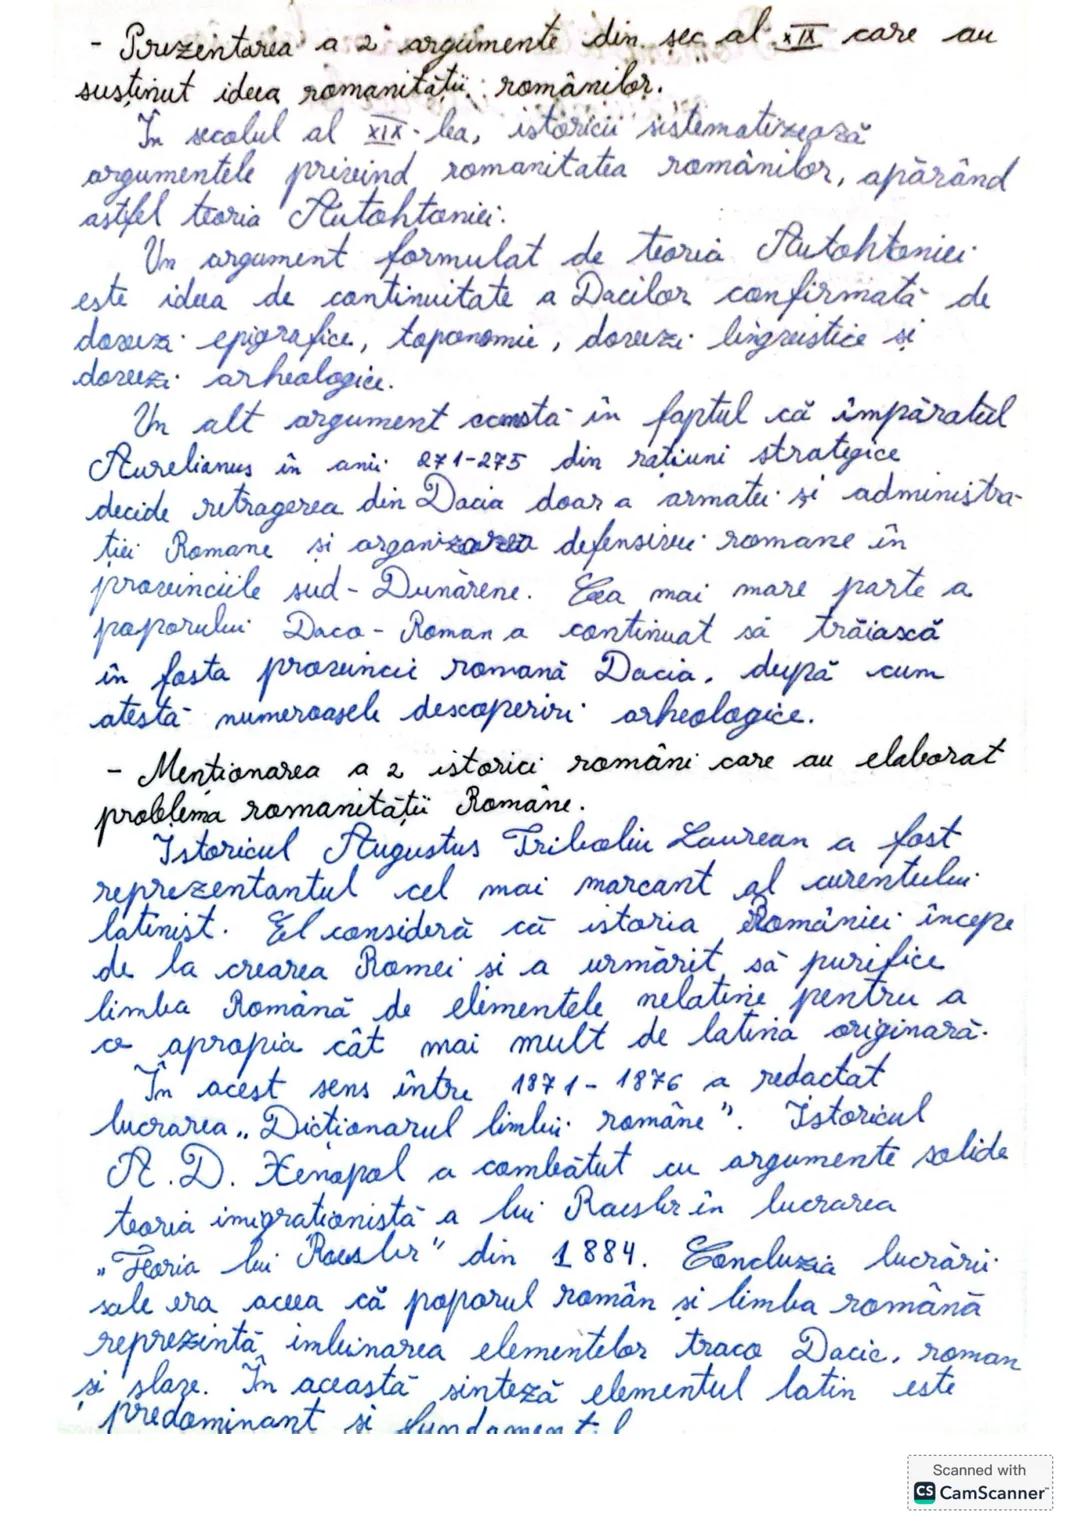 - Prezentarea a 2 argumente din sec al XIX care au
susținut ideea romanității românilor.
În secolul al XIX-lea, istoricii sistematizează
argumentele privind romanitatea românilor, apărând
astfel teoria Autohtoniei.
Un argument formulat de teoria Autohtoniei
este ideea de continuitate a Dacilor confirmată de
dovezi epigrafice, toponomie, dovezi lingvistice si
dovezi arheologice.
Un alt argument constă în faptul că împăratul
Aurelianus în anii 271-275 din ratiuni strategice
decide retragerea din Dacia doar a armatei și administra-
ției Romane si organizarea defensivei romane în
provinciile sud-Dunărene. Cea mai mare parte a
poporului Daco-Roman a continuat să trăiască
în fosta provincii romană Dacia, după cum
atestă numeroasele descoperiri arheologice.
- Menționarea a 2 istorici români care au elaborat
problema romanității Române.
Istoricul Augustus Treboliu Laurean a fost
reprezentantul cel mai marcant al curentului
latinist. El consideră că istoria României începe
de la crearea Romei si a urmărit să purifice
limba Română de elementele nelatine pentru a
o apropia cât mai mult de latina originară.
În acest sens între 1871-1876 a redactat
lucrarea „Dicționarul limbii române". Istoricul
A.D. Xenopol a combătut cu argumente solide
teoria imigrationistă a lui Roesler în lucrarea
„Teoria lui Roesler" din 1884. Concluzia lucrării
sale era aceea că poporul român și limba română
reprezintă îmbinarea elementelor traco Dacic, roman
și slave. În această sinteză elementul latin este
predominant si fundamental
Scanned with
CS CamScanner